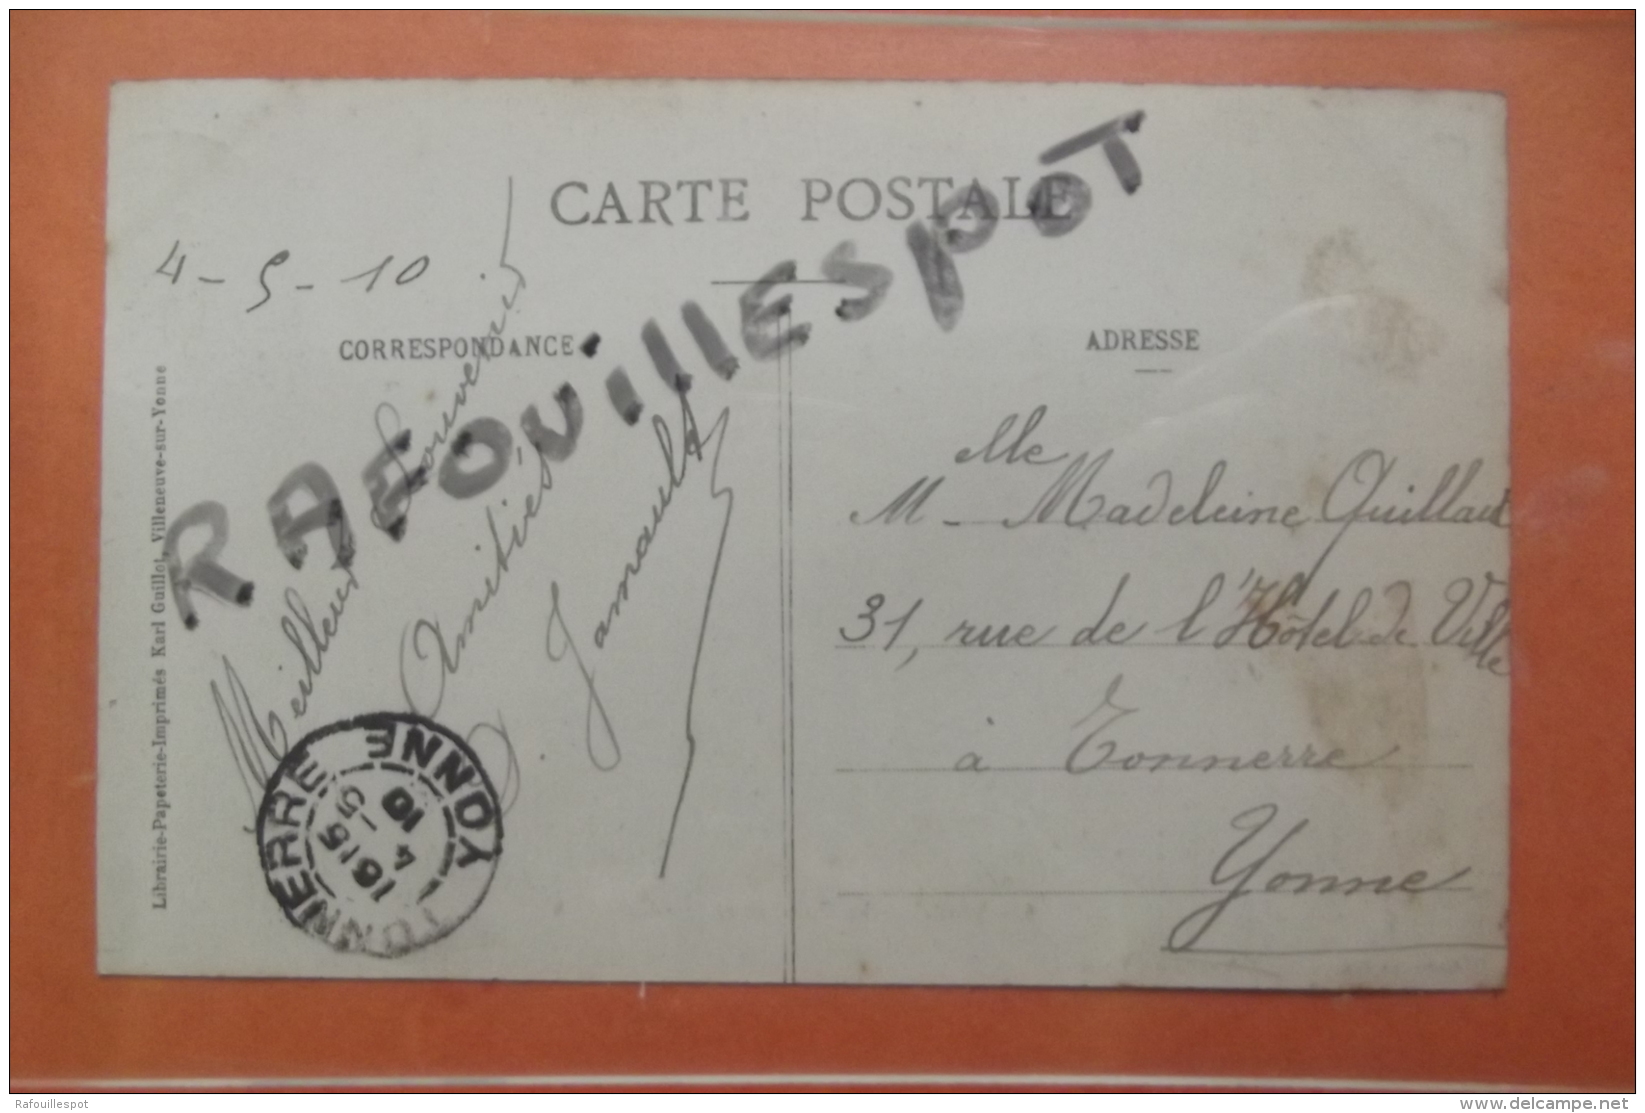 CARTE POSTALE
4-5-10
CORRESPONDANCE
ADRESSE
RAFOUILLESPOT
Meilleur Souvenir
Amitiés
Jamault
Mlle
M - Madeleine Quillaut
31, rue de l'Hôtel de Ville
à Tonnerre
Yonne
TONNERRE
YONNE
1615
4 - 5
10
Librairie-Papeterie-Imprimés Karl Guillot, Villeneuve-sur-Yonne
Rafouillespot
www.delcampe.net